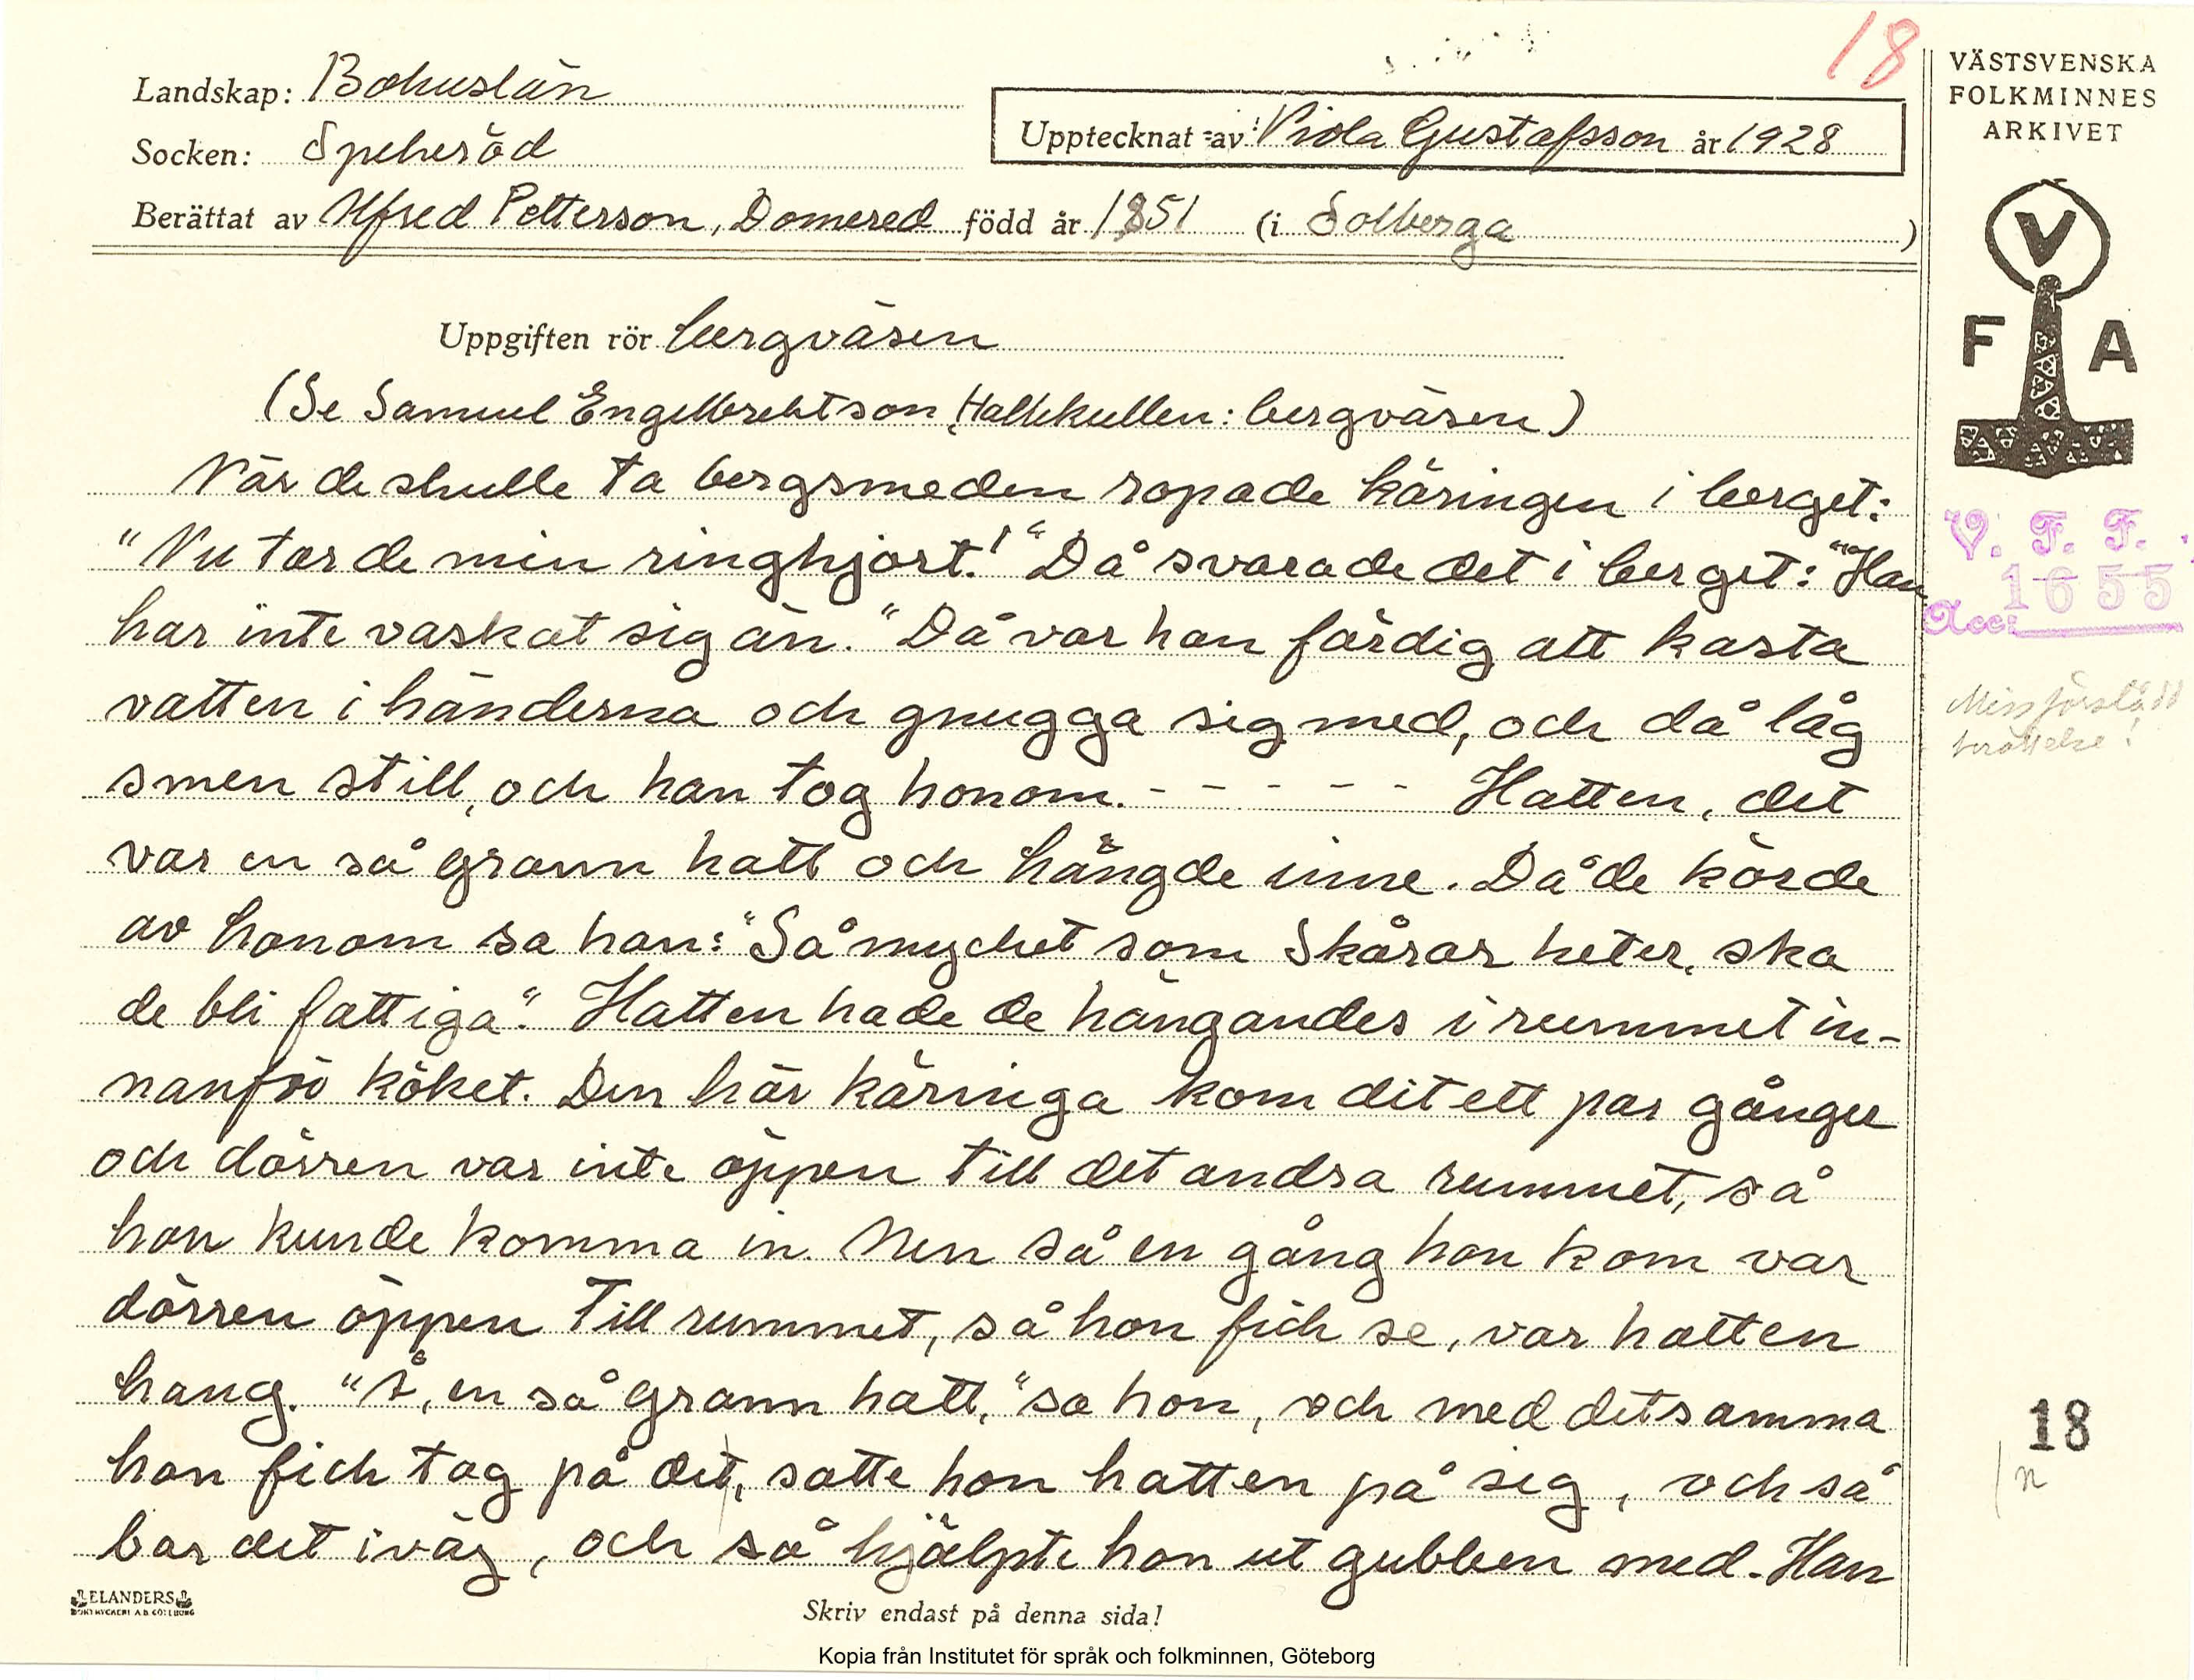 18
Landskap: Bohuslän
Socken: Spekeröd
Upptecknat av: Viola Gustafsson år 1928
Berättat av Alfred Petterson, Domered född år 1851 (i Solberga )
VÄSTSVENSKA
FOLKMINNES
ARKIVET
V
F A
Uppgiften rör bergväsen
(Se Samuel Engelbrektson, Hällekullen: bergväsen)
När de skulle ta bergsmeden ropade käringen i berget:
"Nu tar de min ringhjort!" Då svarade det i berget: "Han
har inte vaskat sig än." Då var han färdig att kasta
vatten i händerna och gnugga sig med, och då låg
smen still, och han tog honom. - - - - - Hatten, det
var en så grann hatt och hängde inne. Då de körde
av honom sa han: "Så mycket som Skårar heter, ska
de bli fattiga". Hatten hade de hängandes i rummet in-
nanför köket. Den här käringa kom dit ett par gånger
och dörren var inte öppen till det andra rummet, så
hon kunde komma in. Men så en gång hon kom var
dörren öppen till rummet, så hon fick se, var hatten
hang. "Å, en så grann hatt," sa hon, och med detsamma
hon fick tag på det, satte hon hatten på sig, och så
bar det iväg, och så hjälpte hon ut gubben med. Han
V. F. F.
Acc: 1655
Missförstådd
berättelse!
18
n
ELANDERS
BOKTRYCKERI A.B. GÖTEBORG
Skriv endast på denna sida!
Kopia från Institutet för språk och folkminnen, Göteborg